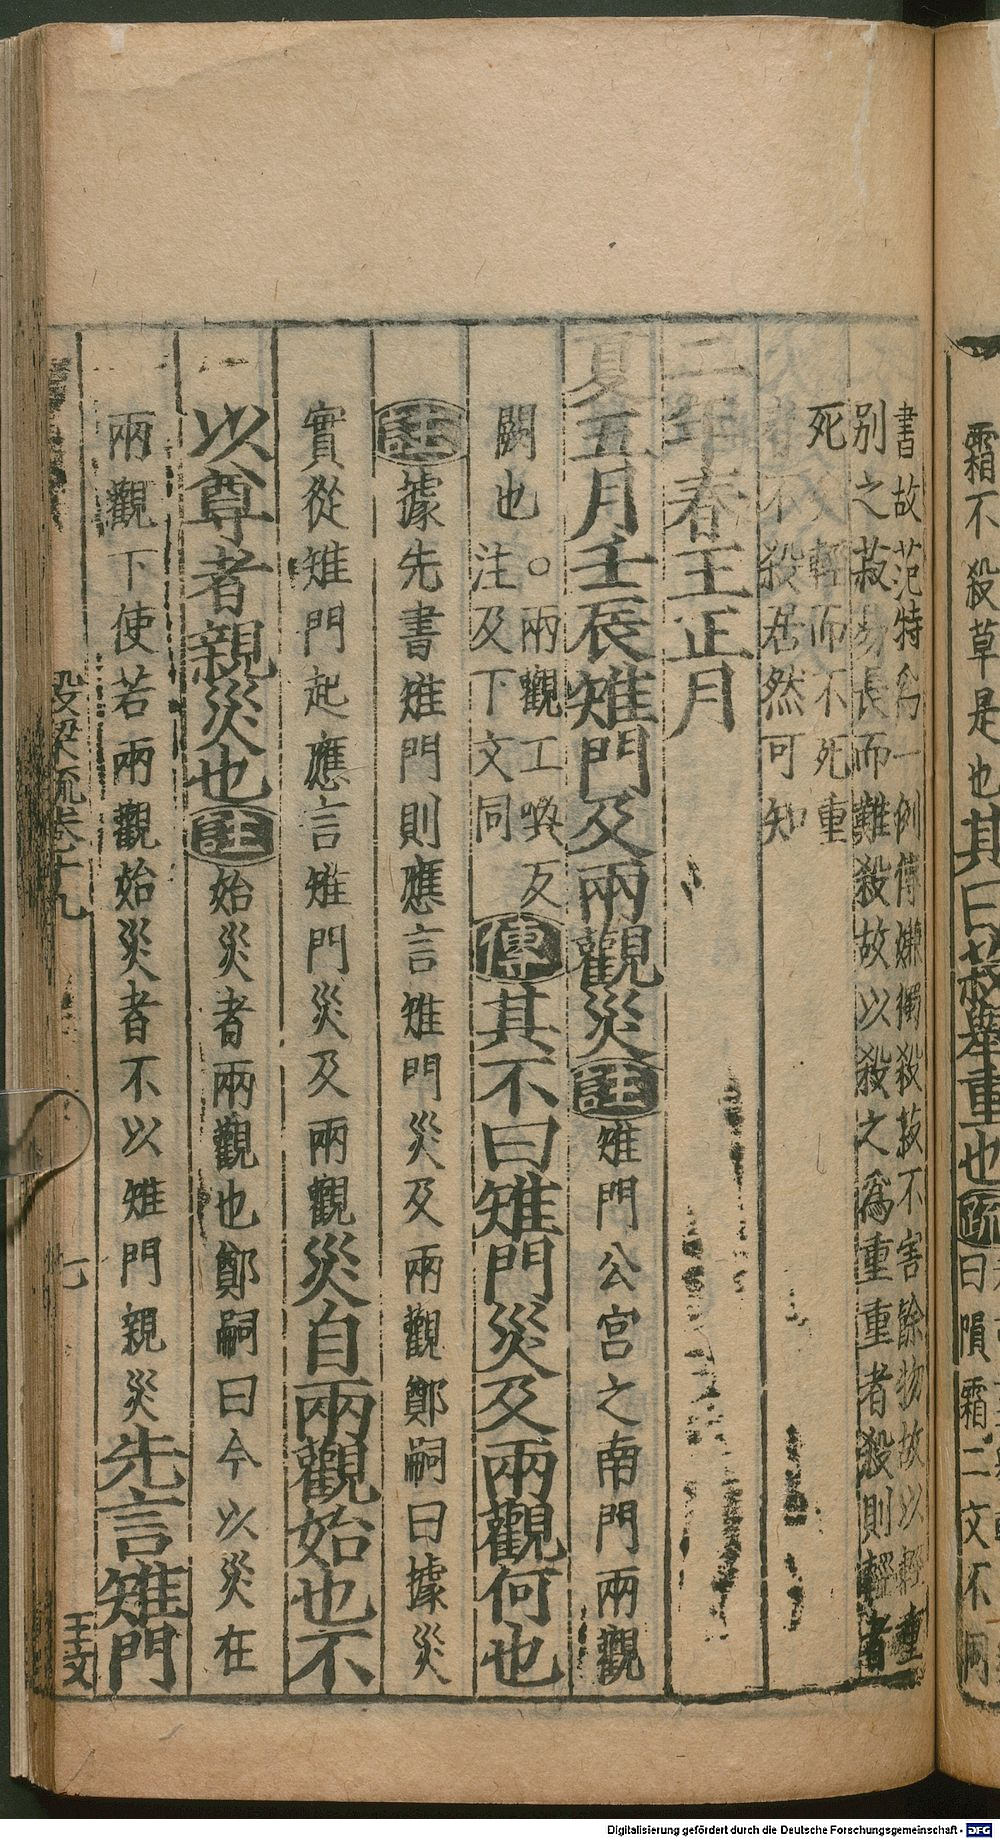 霜不殺草是也其曰菽舉重也疏
曰隕霜二文不同
書故范特爲一例傳嫌獨殺菽不害餘物故以輕重
别之菽易長而難殺故以殺之爲重重者殺則輕者
死矣輕而不死重
者不殺居然可知
二年春王正月
夏五月壬辰雉門及兩觀災註雉門公宮之南門兩觀
闕也○兩觀工喚反
注及下文同
傳其不曰雉門災及兩觀何也
註據先書雉門則應言雉門災及兩觀鄭嗣曰據災
實從雉門起應言雉門災及兩觀災自兩觀始也不
以尊者親災也註始災者兩觀也鄭嗣曰今以災在
兩觀下使若兩觀始災者不以雉門親災先言雉門
穀梁疏卷十九
七
王文
Digitalisierung gefördert durch die Deutsche Forschungsgemeinschaft - DFG